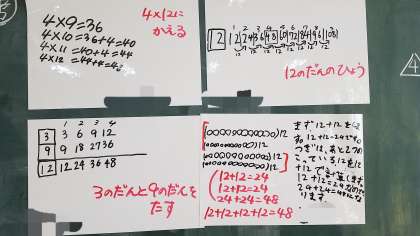 4×9=36
4×10=36+4=40
4×11=40+4=44
4×12=44+4=48
4×12に
かえる
1 2 3 4 5 6 7 8 9
12 12 24 36 48 60 72 84 96 108
12 12 12 12 12 12 12 12
12のだんのひょう
3 3 6 9 12
9 9 18 27 36
12 12 24 36 48
3のだんと9のだんを
たす
12
12
12
12
12+12=24
12+12=24
24+24=48
12+12+12+12=48
まず12+12を
12+12=24
つぎは、あと2つの
こっている12を12
+12でき
12+12=24なので
24+24=48にな
ります。